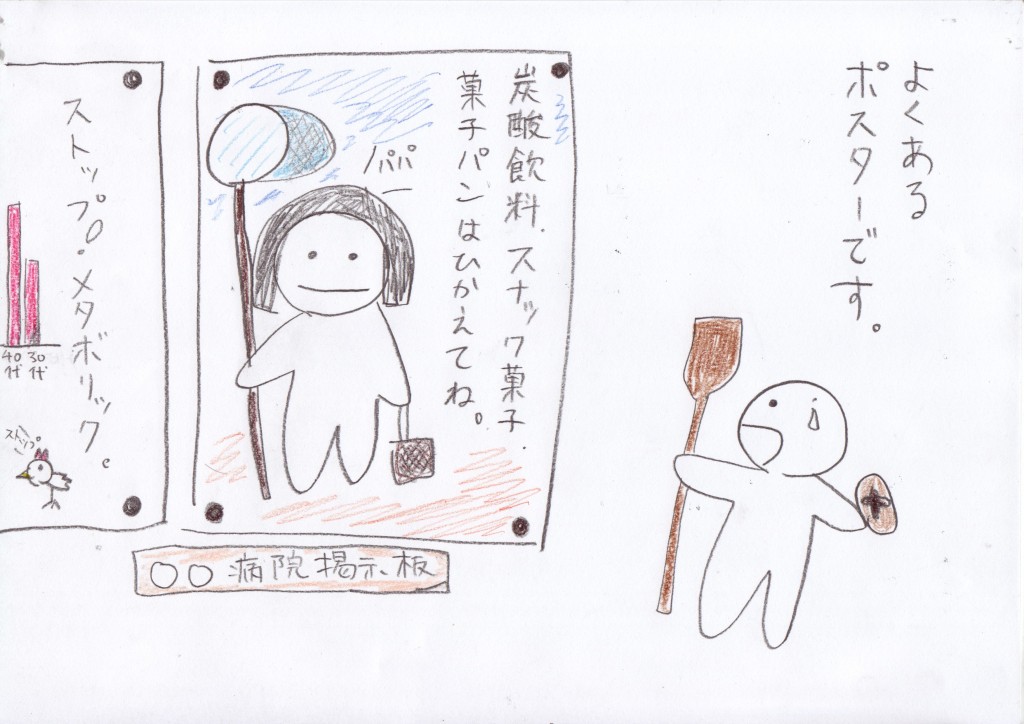 よくある
ポスターです。
炭酸飲料.スナック菓子.
菓子パンはひかえてね。
パパ
ストップ・メタボリック。
40代
30代
ストップ
○○病院掲示板